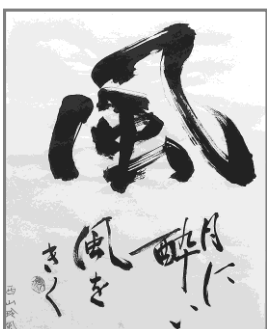 風
月に
酔い
風を
きく